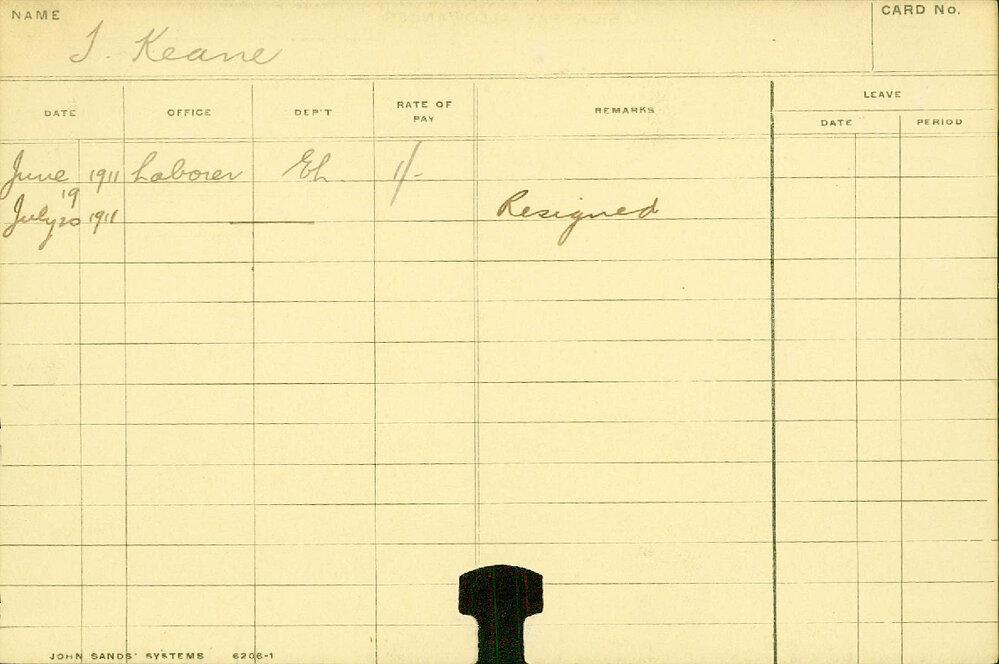 NAME
CARD No.
J. Keane
DATE OFFICE DEP'T RATE OF PAY REMARKS LEAVE
DATE PERIOD
June 1911 Laborer EL 1/-
19
July 20 1911 Resigned
JOHN SANDS' SYSTEMS 6206-1